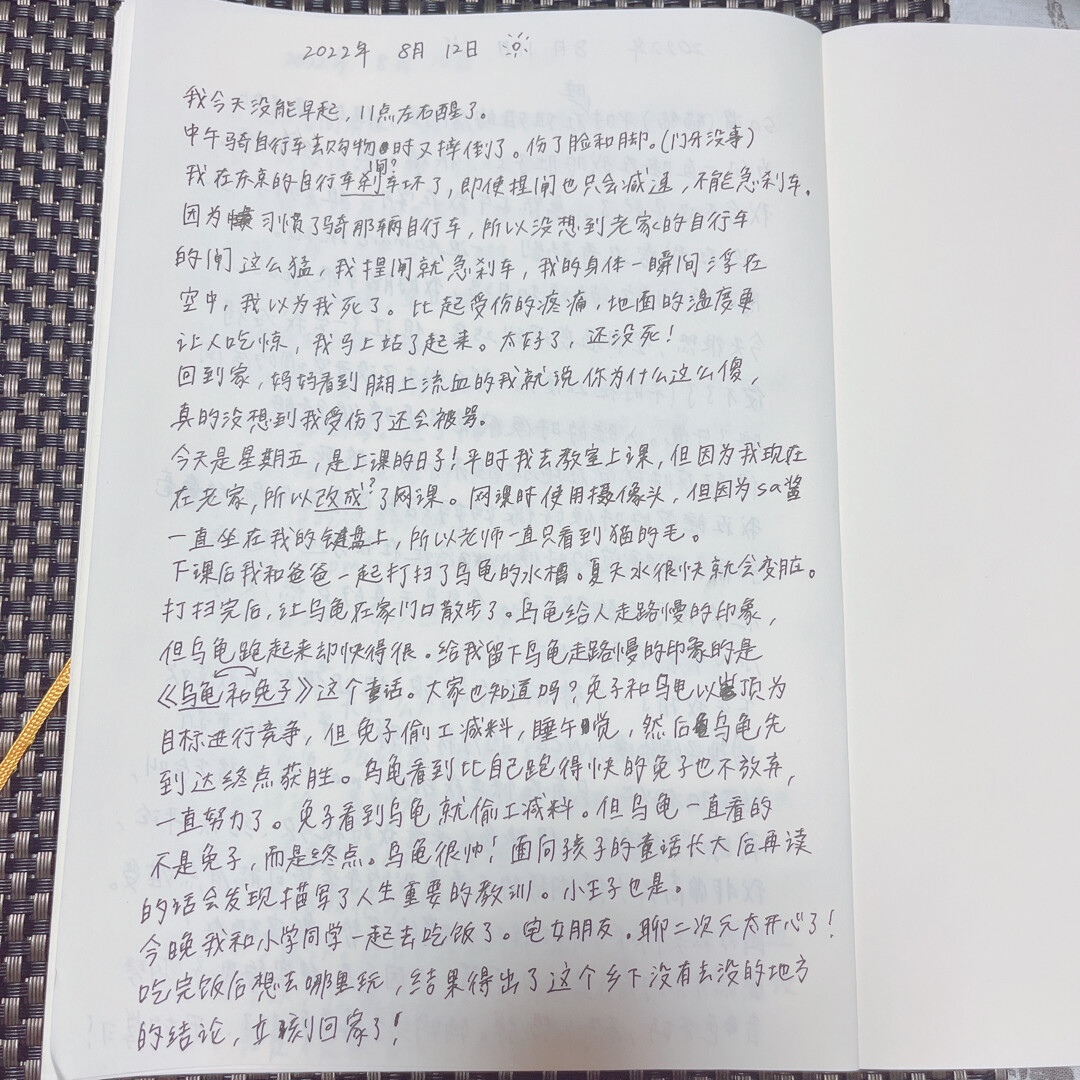 2022年 8月 12日
我今天没能早起，11点左右醒了。
中午骑自行车去购物时又摔倒了。伤了脸和脚。(门牙没事)
闸?
我在东京的自行车刹车坏了，即使捏闸也只会减速，不能急刹车。
因为习惯了骑那辆自行车，所以没想到老家的自行车
的闸这么猛，我捏闸就急刹车，我的身体一瞬间浮在
空中，我以为我死了。比起受伤的疼痛，地面的温度更
让人吃惊，我马上站了起来。太好了，还没死！
回到家，妈妈看到脚上流血的我就说你为什么这么傻，
真的没想到我受伤了还会被骂。
今天是星期五，是上课的日子！平时我去教室上课，但因为我现在
在老家，所以改成?了网课。网课时使用摄像头，但因为sa酱
一直坐在我的键盘上，所以老师一直只看到猫的毛。
下课后我和爸爸一起打扫了乌龟的水槽。夏天水很快就会变脏。
打扫完后，让乌龟在家门口散步了。乌龟给人走路慢的印象，
但乌龟跑起来却快得很。给我留下乌龟走路慢的印象的是
《乌龟和兔子》这个童话。大家也知道吗？兔子和乌龟以顶为
目标进行竞争，但兔子偷工减料，睡午觉，然后乌龟先
到达终点获胜。乌龟看到比自己跑得快的兔子也不放弃，
一直努力了。兔子看到乌龟就偷工减料。但乌龟一直看的
不是兔子，而是终点。乌龟很帅！面向孩子的童话长大后再读
的话会发现描写了人生重要的教训。小王子也是。
今晚我和小学同学一起去吃饭了。宅女朋友。聊二次元太开心了！
吃完饭后想去哪里玩，结果得出了这个乡下没有去没的地方
的结论，立刻回家了！